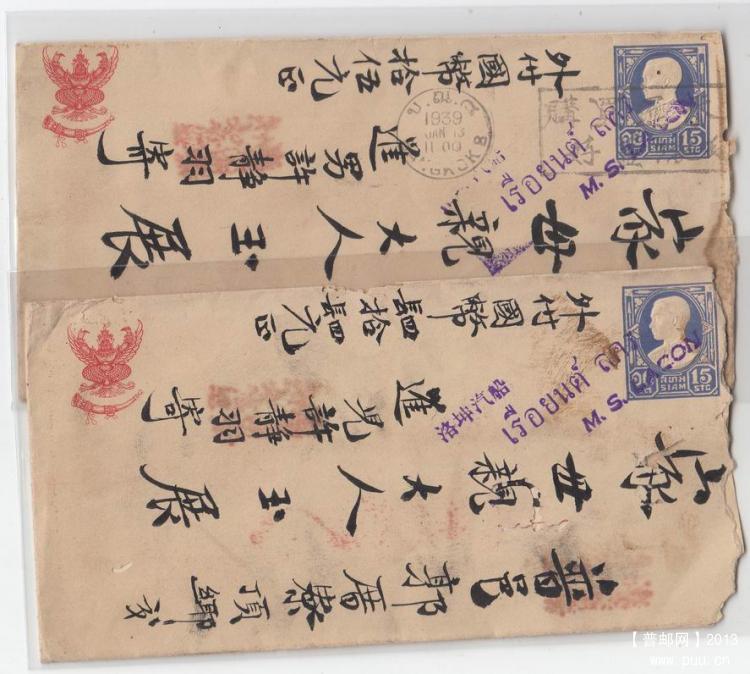 晉邑郭厝寮頂鄉交
家母親大人玉展
暹兒許靜羽寄
外付國幣䦉拾䦉元正
15
SIAM
STG
เรือยนต์
M. S.
家母親大人玉展
暹男許靜羽寄
外付國幣拾伍元正
15
SIAM
STG
1939
JAN 13
11 00
เรือยนต์
M. S.
【普邮网】2013
www.puu.cn